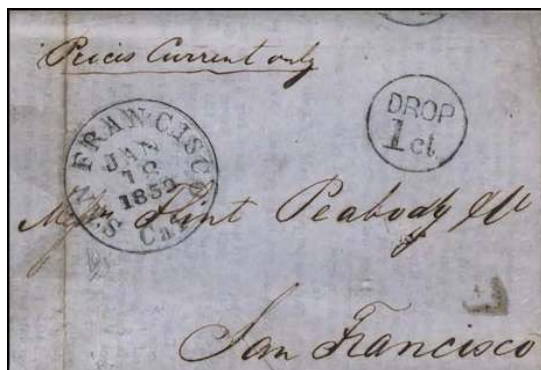 Prices Current only
DROP
1 ct
SAN FRANCISCO
JAN
18
Cal.
Flint Peabody & Co
San Francisco